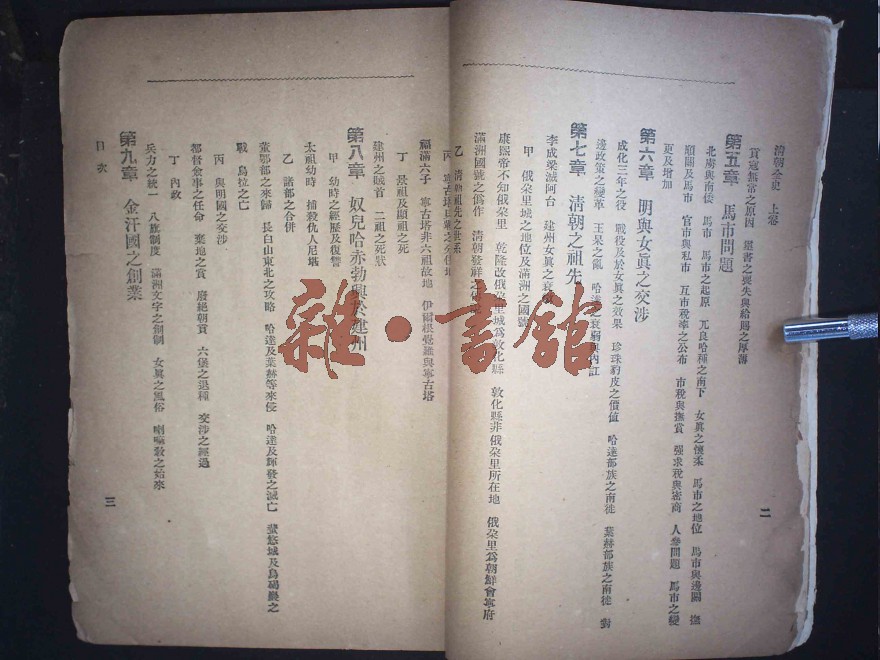 清朝全史 上卷
貢寇無常之原因 還書之喪失與給賜之厚薄
第五章 馬市問題
北虜與南倭 馬市 馬市之起原 兀良哈種之南下 女眞之懷柔 馬市之地位 馬市與邊關 撫
順關及馬市 官市與私市 互市稅率之公布 市稅與撫賞 强求稅與密商 人參問題 馬市之變
更及增加
第六章 明與女眞之交涉
成化三年之役 戰役及於女眞之效果 珍珠豹皮之價値 哈達部族之南徙 葉赫部族之南徙 對
邊政策之變革 王杲之亂 哈達之衰弱與內訌
李成梁滅阿台 建州女眞之衰
第七章 清朝之祖先
甲 俄朶里城之地位及滿洲之國號
康熙帝不知俄朶里 乾隆改俄朶里城爲敦化縣 敦化縣非俄朶里所在地 俄朶里爲朝鮮會寧府
滿洲國號之僞作 清朝發祥之
乙 清朝祖先之世系
丙 寧古塔
福滿六子 寧古塔非六祖故地 伊爾根覺羅與寧古塔
丁 景祖及顯祖之死
建州之賊首 二祖之死狀
第八章 奴兒哈赤勃興於建州
甲 幼時之經歷及復讐
太祖幼時 捕殺仇人尼堪
乙 諸部之合併
董鄂部之來歸 長白山東北之攻略 哈達及葉赫等來侵 哈達及輝發之滅亡 蜚悠城及烏碣巖之
戰 烏拉之亡
丙 與明國之交涉
都督僉事之任命 棄地之賞 廢絕朝貢 六堡之退種 交涉之經過
丁 內政
兵力之統一 八旗制度 滿洲文字之創制 女眞之風俗 喇嘛敎之始來
第九章 金汗國之創業
目次
二
三
雜·書館